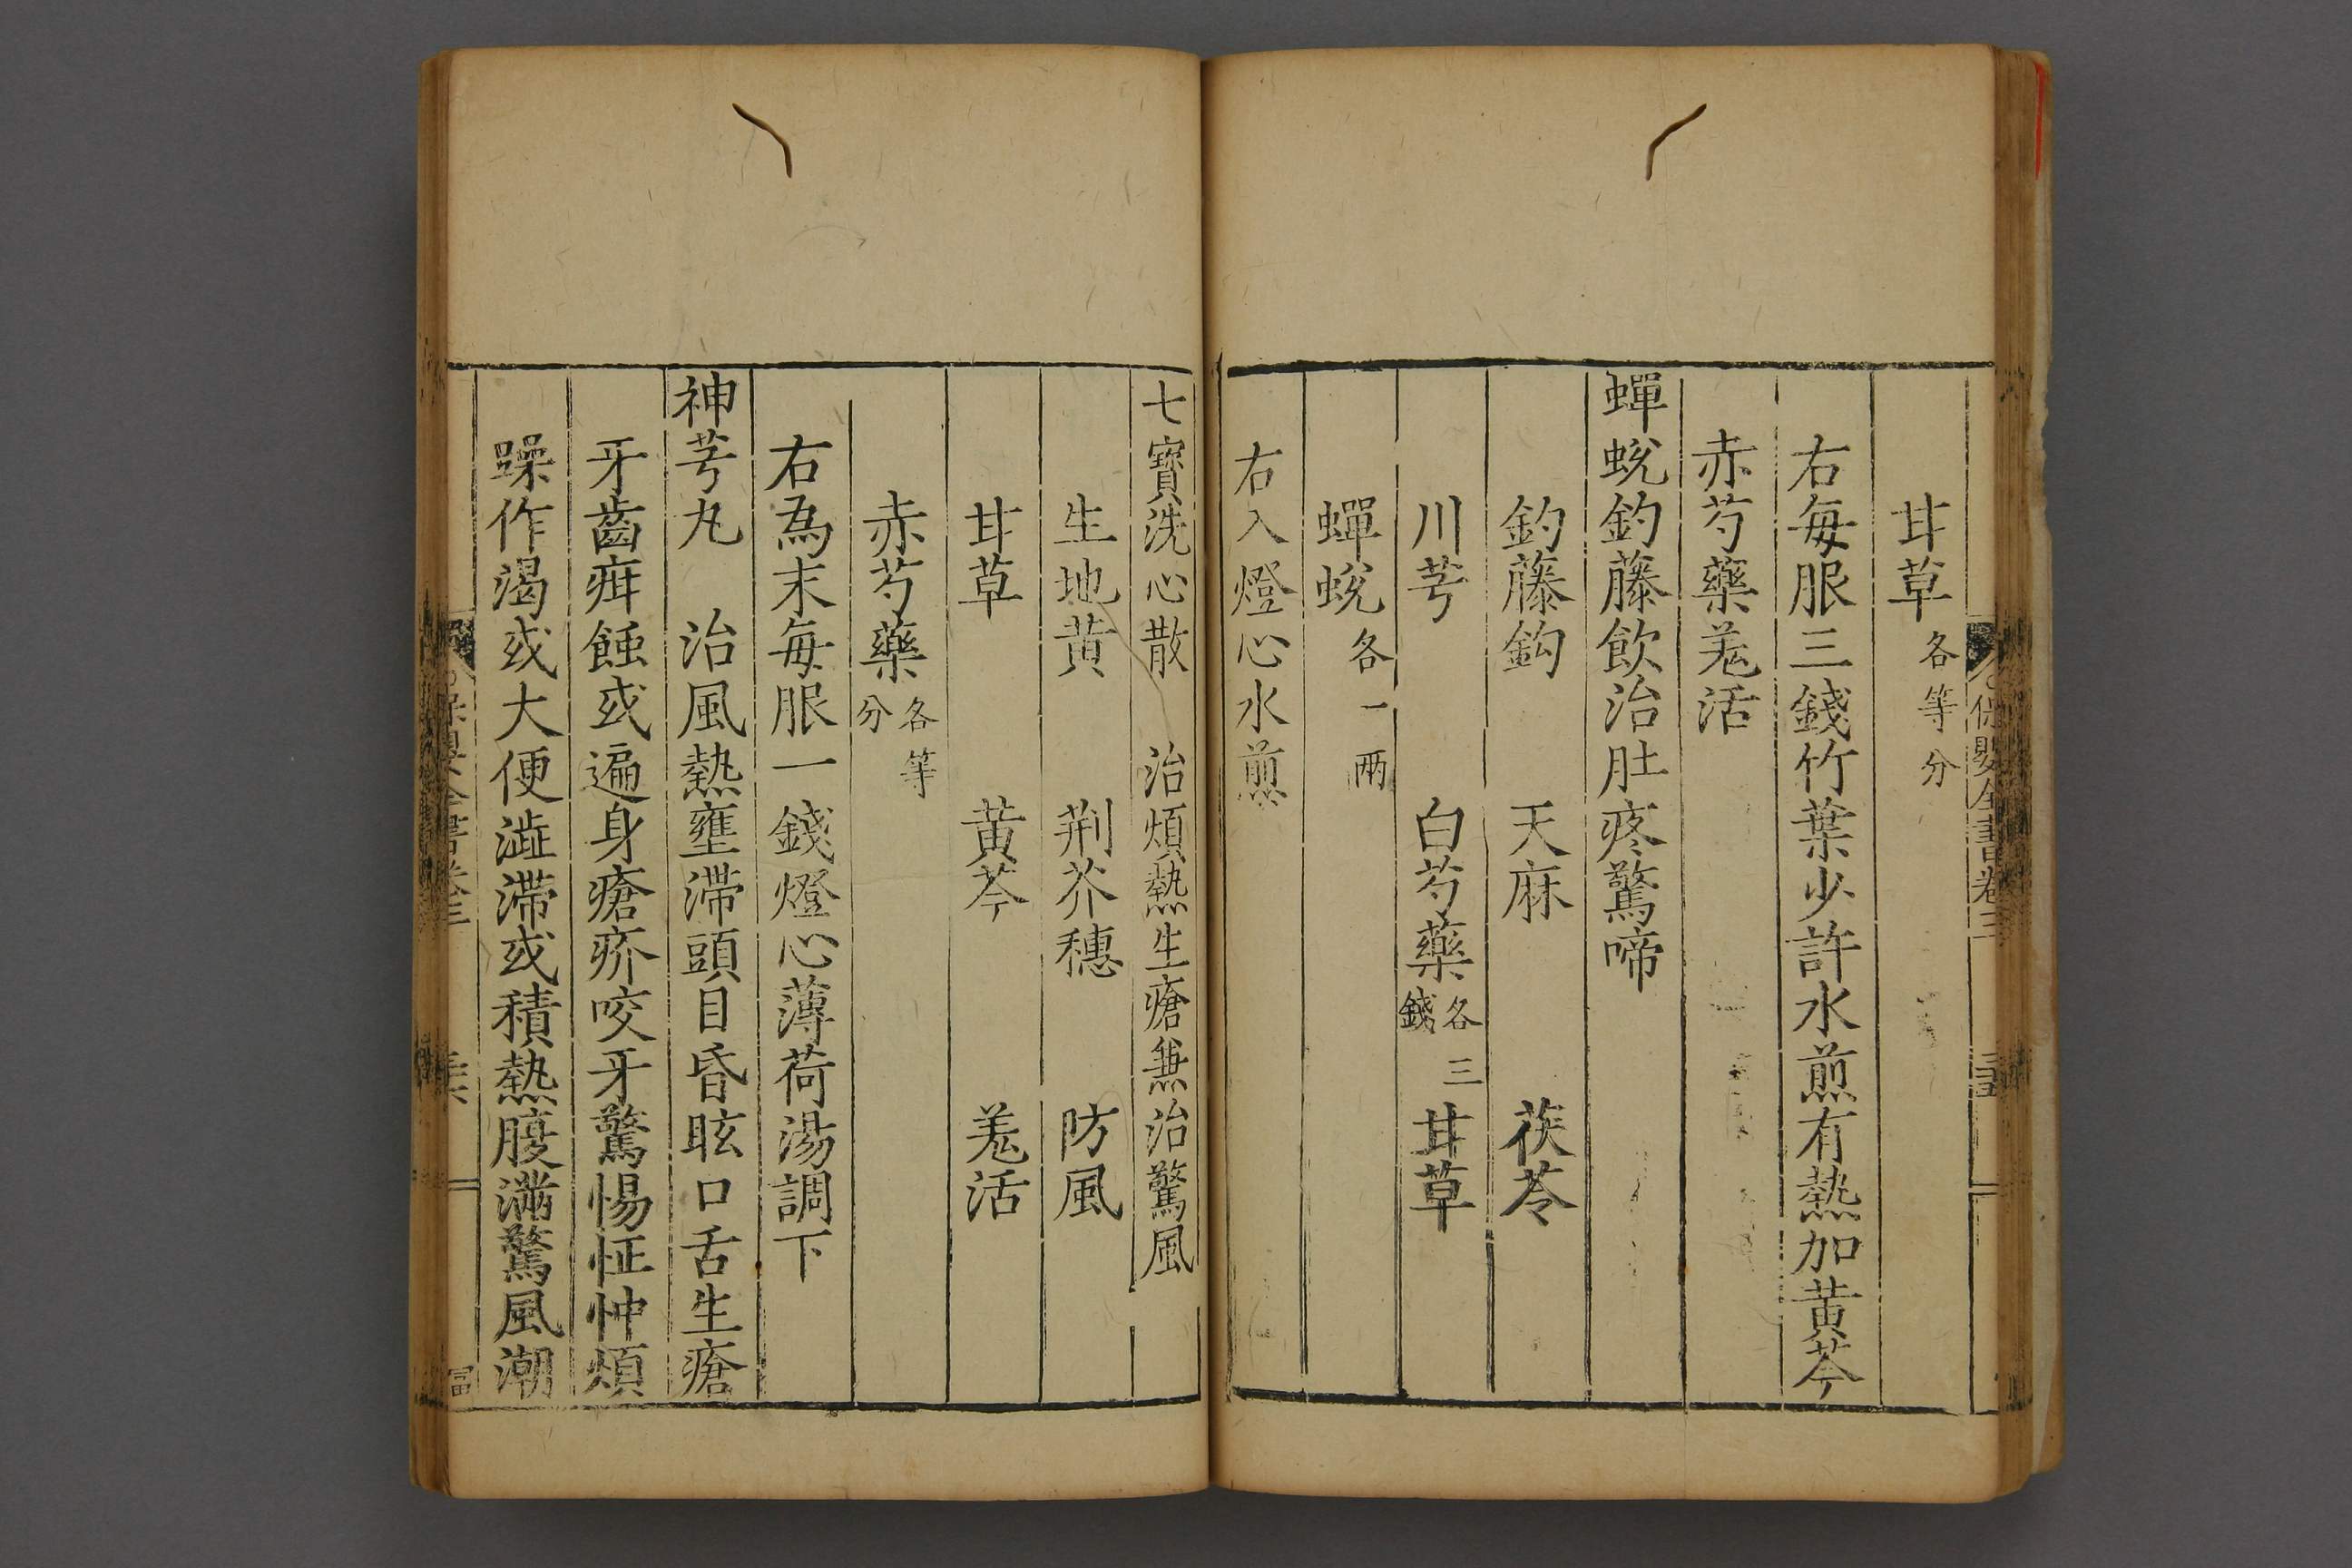 甘草各等分
右每服三錢竹葉少許水煎有熱加黃芩
赤芍藥羗活
蟬蛻釣藤飲治肚疼驚啼
釣藤鈎 天麻 茯苓
川芎 白芍藥各三錢 甘草
蟬蛻各一兩
右入燈心水煎
七寶洗心散 治煩熱生瘡兼治驚風
生地黃 荆芥穗 防風
甘草 黃芩 羗活
赤芍藥各等分
右為末每服一錢燈心薄荷湯調下
神芎丸 治風熱壅滯頭目昏眩口舌生瘡
牙齒疳蝕或遍身瘡疥咬牙驚惕怔忡煩
躁作渴或大便澁滯或積熱腹滿驚風潮
保嬰全書卷三